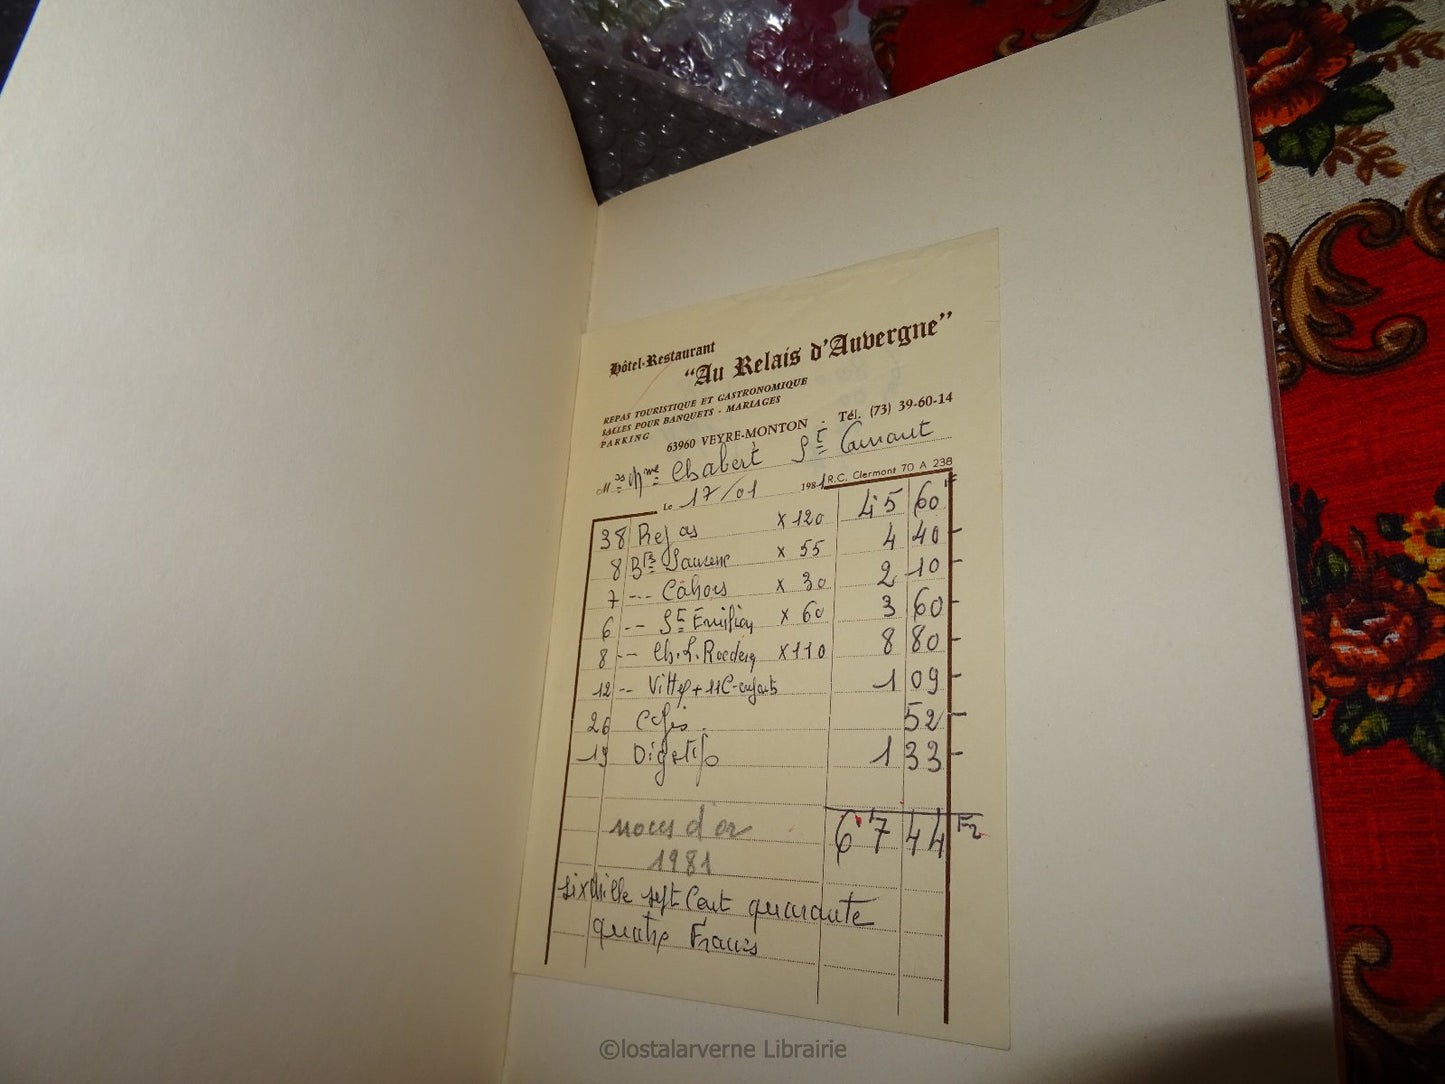 Hôtel-Restaurant
"Au Relais d'Auvergne"
REPAS TOURISTIQUE ET GASTRONOMIQUE
SALLES POUR BANQUETS - MARIAGES
PARKING
63960 VEYRE-MONTON - Tél. (73) 39-60-14
M Mme Chabert St
Le 17/01 1981 R.C. Clermont 70 A 238
38 Repas x 120 45 60
8 Bts x 55 4 40
7 -- Cahors x 30 2 10
6 -- St Emilion x 60 3 60
8 -- Ch. L. Roederer x 110 8 80
12 -- Vittel + 1 09
26 Cafés 52
19 Digestifs 1 33
6744
noces d'or
1981
six mille sept Cent quarante
quatre Francs
©lostalarverne Librairie